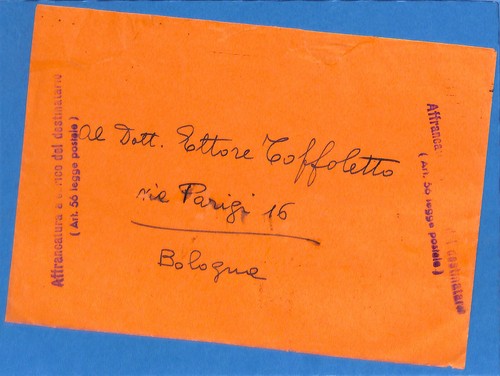 Affrancatura a carico del destinatario
( Art. 56 legge postale )
Al Dott. Ettore Toffoletto
via Parigi 16
Bologna
Affranca
destinatario
( Art. 56 legge postale )